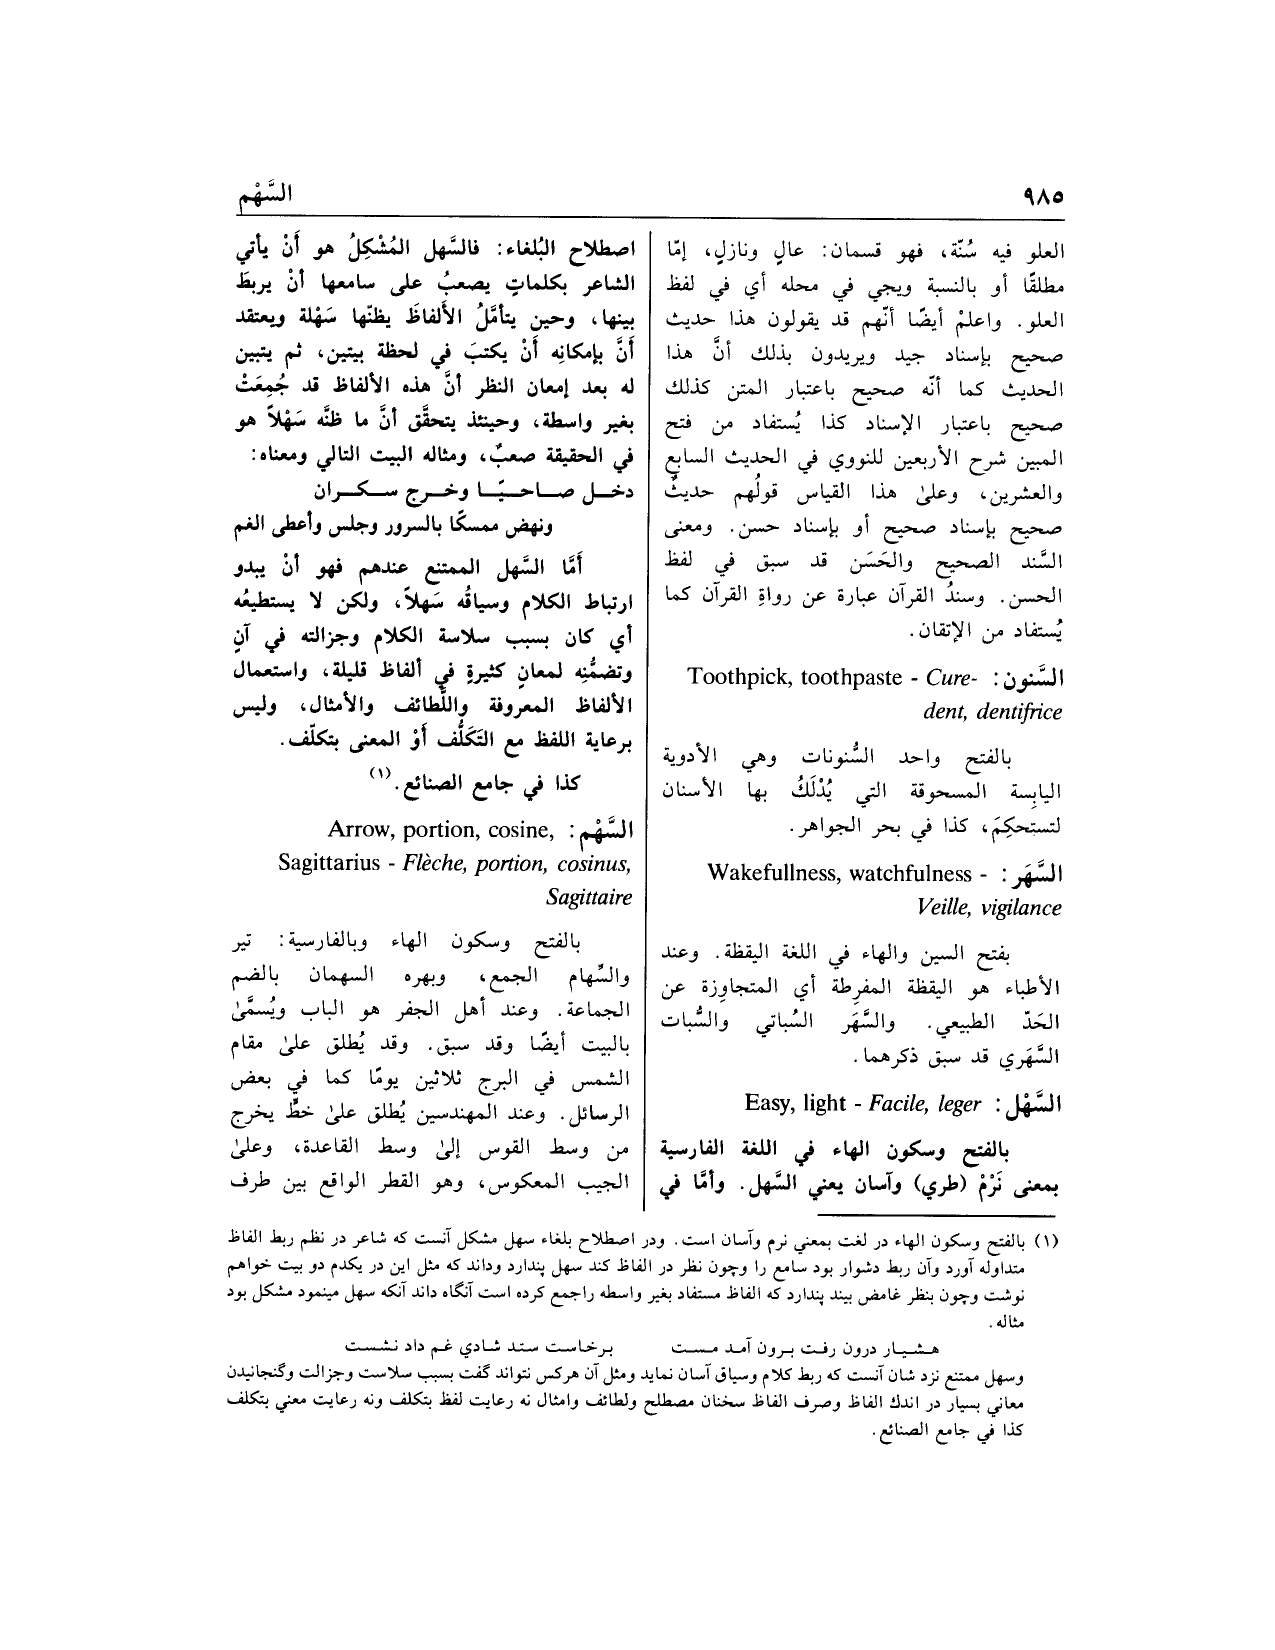 ٩٨٥
السَّهْم
العلو فيه سُنّة، فهو قسمان: عالٍ ونازلٍ، إمّا
مطلقًا أو بالنسبة ويجي في محله أي في لفظ
العلو. واعلمْ أيضًا أنّهم قد يقولون هذا حديث
صحيح بإسناد جيد ويريدون بذلك أنَّ هذا
الحديث كما أنّه صحيح باعتبار المتن كذلك
صحيح باعتبار الإسناد كذا يُستفاد من فتح
المبين شرح الأربعين للنووي في الحديث السابع
والعشرين، وعلىٰ هذا القياس قولُهم حديثٌ
صحيح بإسناد صحيح أو بإسناد حسن. ومعنى
السَّند الصحيح والحَسَن قد سبق في لفظ
الحسن. وسندُ القرآن عبارة عن رواةِ القرآن كما
يُستفاد من الإتقان.
السَّنون: Toothpick, toothpaste - Cure-
dent, dentifrice
بالفتح واحد السُّنونات وهي الأدوية
اليابِسة المسحوقة التي يُدْلَكُ بها الأسنان
لتستحكِمَ، كذا في بحر الجواهر.
السَّهَر: Wakefullness, watchfulness -
Veille, vigilance
بفتح السين والهاء في اللغة اليقظة. وعند
الأطباء هو اليقظة المفرِطة أي المتجاوِزة عن
الحَدّ الطبيعي. والسَّهَر السُّباتي والسُّبات
السَّهَري قد سبق ذكرهما.
السَّهْل: Easy, light - Facile, leger
بالفتح وسكون الهاء في اللغة الفارسية
بمعنى نَرْمْ (طري) وآسان يعني السَّهل. وأمَّا في
اصطلاح البُلغاء: فالسَّهل المُشْكِلُ هو أَنْ يأتي
الشاعر بكلماتٍ يصعبُ على سامعها أنْ يربطَ
بينها، وحين يتأمَّلُ الألفاظَ يظنّها سَهْلة ويعتقد
أَنَّ بإمكانِه أَنْ يكتبَ في لحظة بيتين، ثم يتبين
له بعد إمعان النظر أنَّ هذه الألفاظ قد جُمِعَتْ
بغير واسطة، وحينئذ يتحقَّق أنَّ ما ظنَّه سَهْلاً هو
في الحقيقة صعبٌ، ومثاله البيت التالي ومعناه:
دخل صاحيًا وخرج سكران
ونهض ممسكًا بالسرور وجلس وأعطى الغم
أَمَّا السَّهل الممتنع عندهم فهو أنْ يبدو
ارتباط الكلام وسياقُه سَهلاً، ولكن لا يستطيعُه
أي كان بسبب سلاسة الكلام وجزالته في آنٍ
وتضمُّنِه لمعانٍ كثيرةٍ في ألفاظ قليلة، واستعمال
الألفاظ المعروفة واللَّطائف والأمثال، وليس
برعاية اللفظ مع التَكَلُّف أَوْ المعنى بتكلّف.
كذا في جامع الصنائع.(١)
السَّهْم: Arrow, portion, cosine,
Sagittarius - Flèche, portion, cosinus,
Sagittaire
بالفتح وسكون الهاء وبالفارسية: تير
والسِّهام الجمع، وبهره السهمان بالضم
الجماعة. وعند أهل الجفر هو الباب ويُسمَّىٰ
بالبيت أيضًا وقد سبق. وقد يُطلق علىٰ مقام
الشمس في البرج ثلاثين يومًا كما في بعض
الرسائل. وعند المهندسين يُطلق علىٰ خطٍّ يخرج
من وسط القوس إلىٰ وسط القاعدة، وعلىٰ
الجيب المعكوس، وهو القطر الواقع بين طرف
(١) بالفتح وسكون الهاء در لغت بمعني نرم وآسان است. ودر اصطلاح بلغاء سهل مشكل آنست كه شاعر در نظم ربط الفاظ
متداوله آورد وآن ربط دشوار بود سامع را وچون نظر در الفاظ كند سهل پندارد وداند كه مثل اين در يكدم دو بيت خواهم
نوشت وچون بنظر غامض بيند پندارد كه الفاظ مستفاد بغير واسطه راجمع كرده است آنگاه داند آنكه سهل مينمود مشكل بود
مثاله.
هشيار درون رفت برون آمد مست برخاست ستد شادي غم داد نشست
وسهل ممتنع نزد شان آنست كه ربط كلام وسياق آسان نمايد ومثل آن هركس نتواند گفت بسبب سلاست وجزالت وگنجانيدن
معاني بسيار در اندك الفاظ وصرف الفاظ سخنان مصطلح ولطائف وامثال نه رعايت لفظ بتكلف ونه رعايت معني بتكلف
كذا في جامع الصنائع.